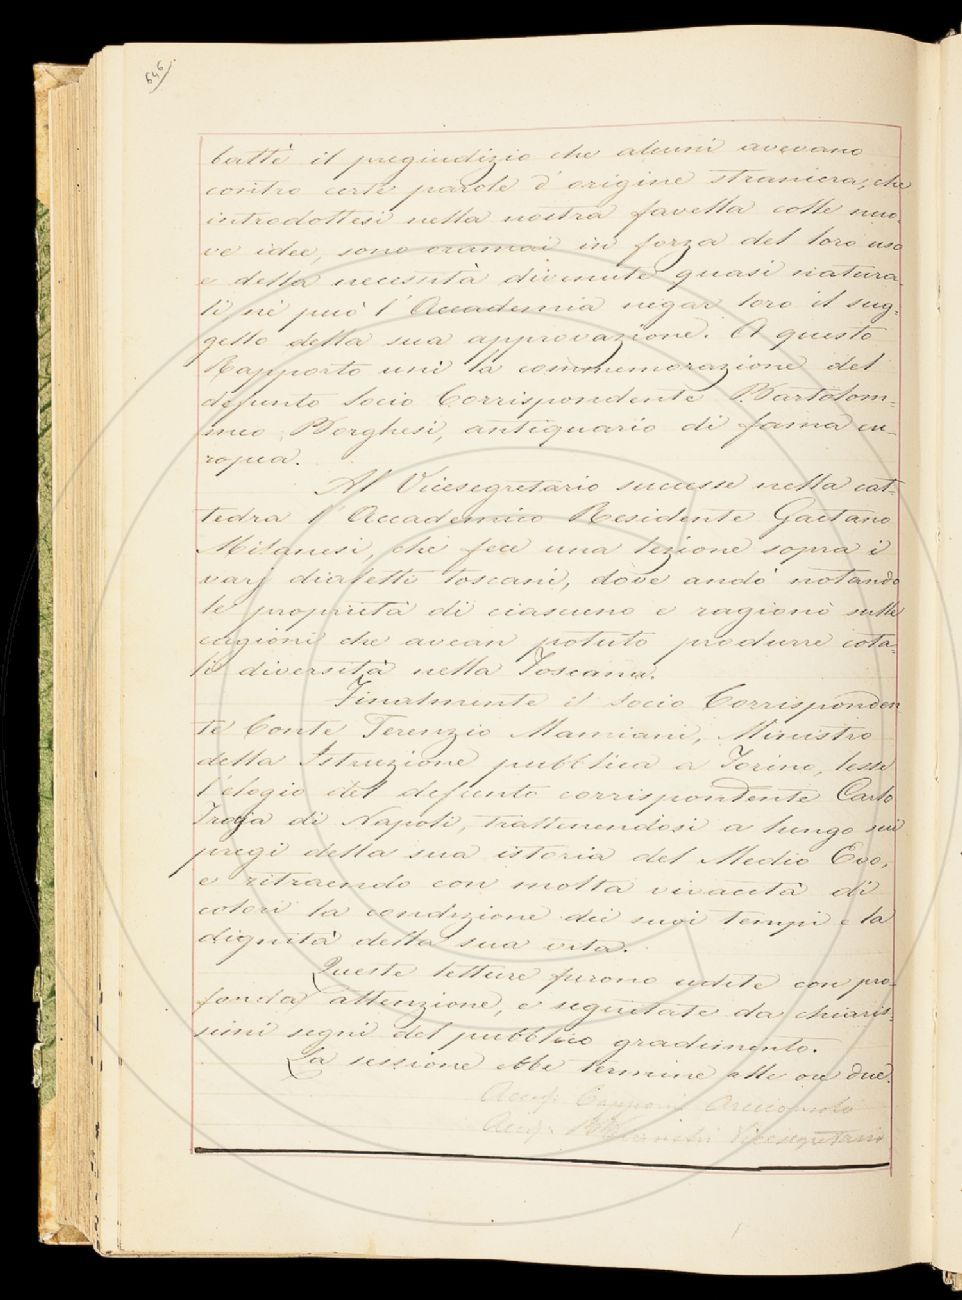 646
battè il pregiudizio che alcuni avevano
contro certe parole d'origine straniera, che
introdottesi nella nostra favella colle nuo-
ve idee, sono oramai in forza del loro uso
e della necessità divenute quasi natura-
li, nè può l'Accademia negar loro il sug-
gello della sua approvazione. A questo
Rapporto unì la commemorazione del
defunto Socio Corrispondente Bartolom-
meo Borghesi, antiquario di fama eu-
ropea.
Al Vicesegretario successe nella cat-
tedra l'Accademico Residente Gaetano
Milanesi, che fece una lezione sopra i
varj dialetti toscani, dove andò notando
le proprietà di ciascuno e ragionò sulle
cagioni che avean potuto produrre cota-
li diversità nella Toscana.
Finalmente il Socio Corrisponden
te Conte Terenzio Mamiani, Ministro
della Istruzione pubblica a Torino, lesse
l'elogio del defunto corrispondente Carlo
Troja di Napoli, trattenendosi a lungo sui
pregi della sua istoria del Medio Evo,
e ritraendo con molta vivacità di
colori la condizione dei suoi tempi e la
dignità della sua vita.
Queste letture furono udite con pro-
fonda attenzione, e seguitate da chiaris-
simi segni del pubblico gradimento.
La sessione ebbe termine alle ore due.
Capponi Arciconsolo
Bianchi Vicesegretario